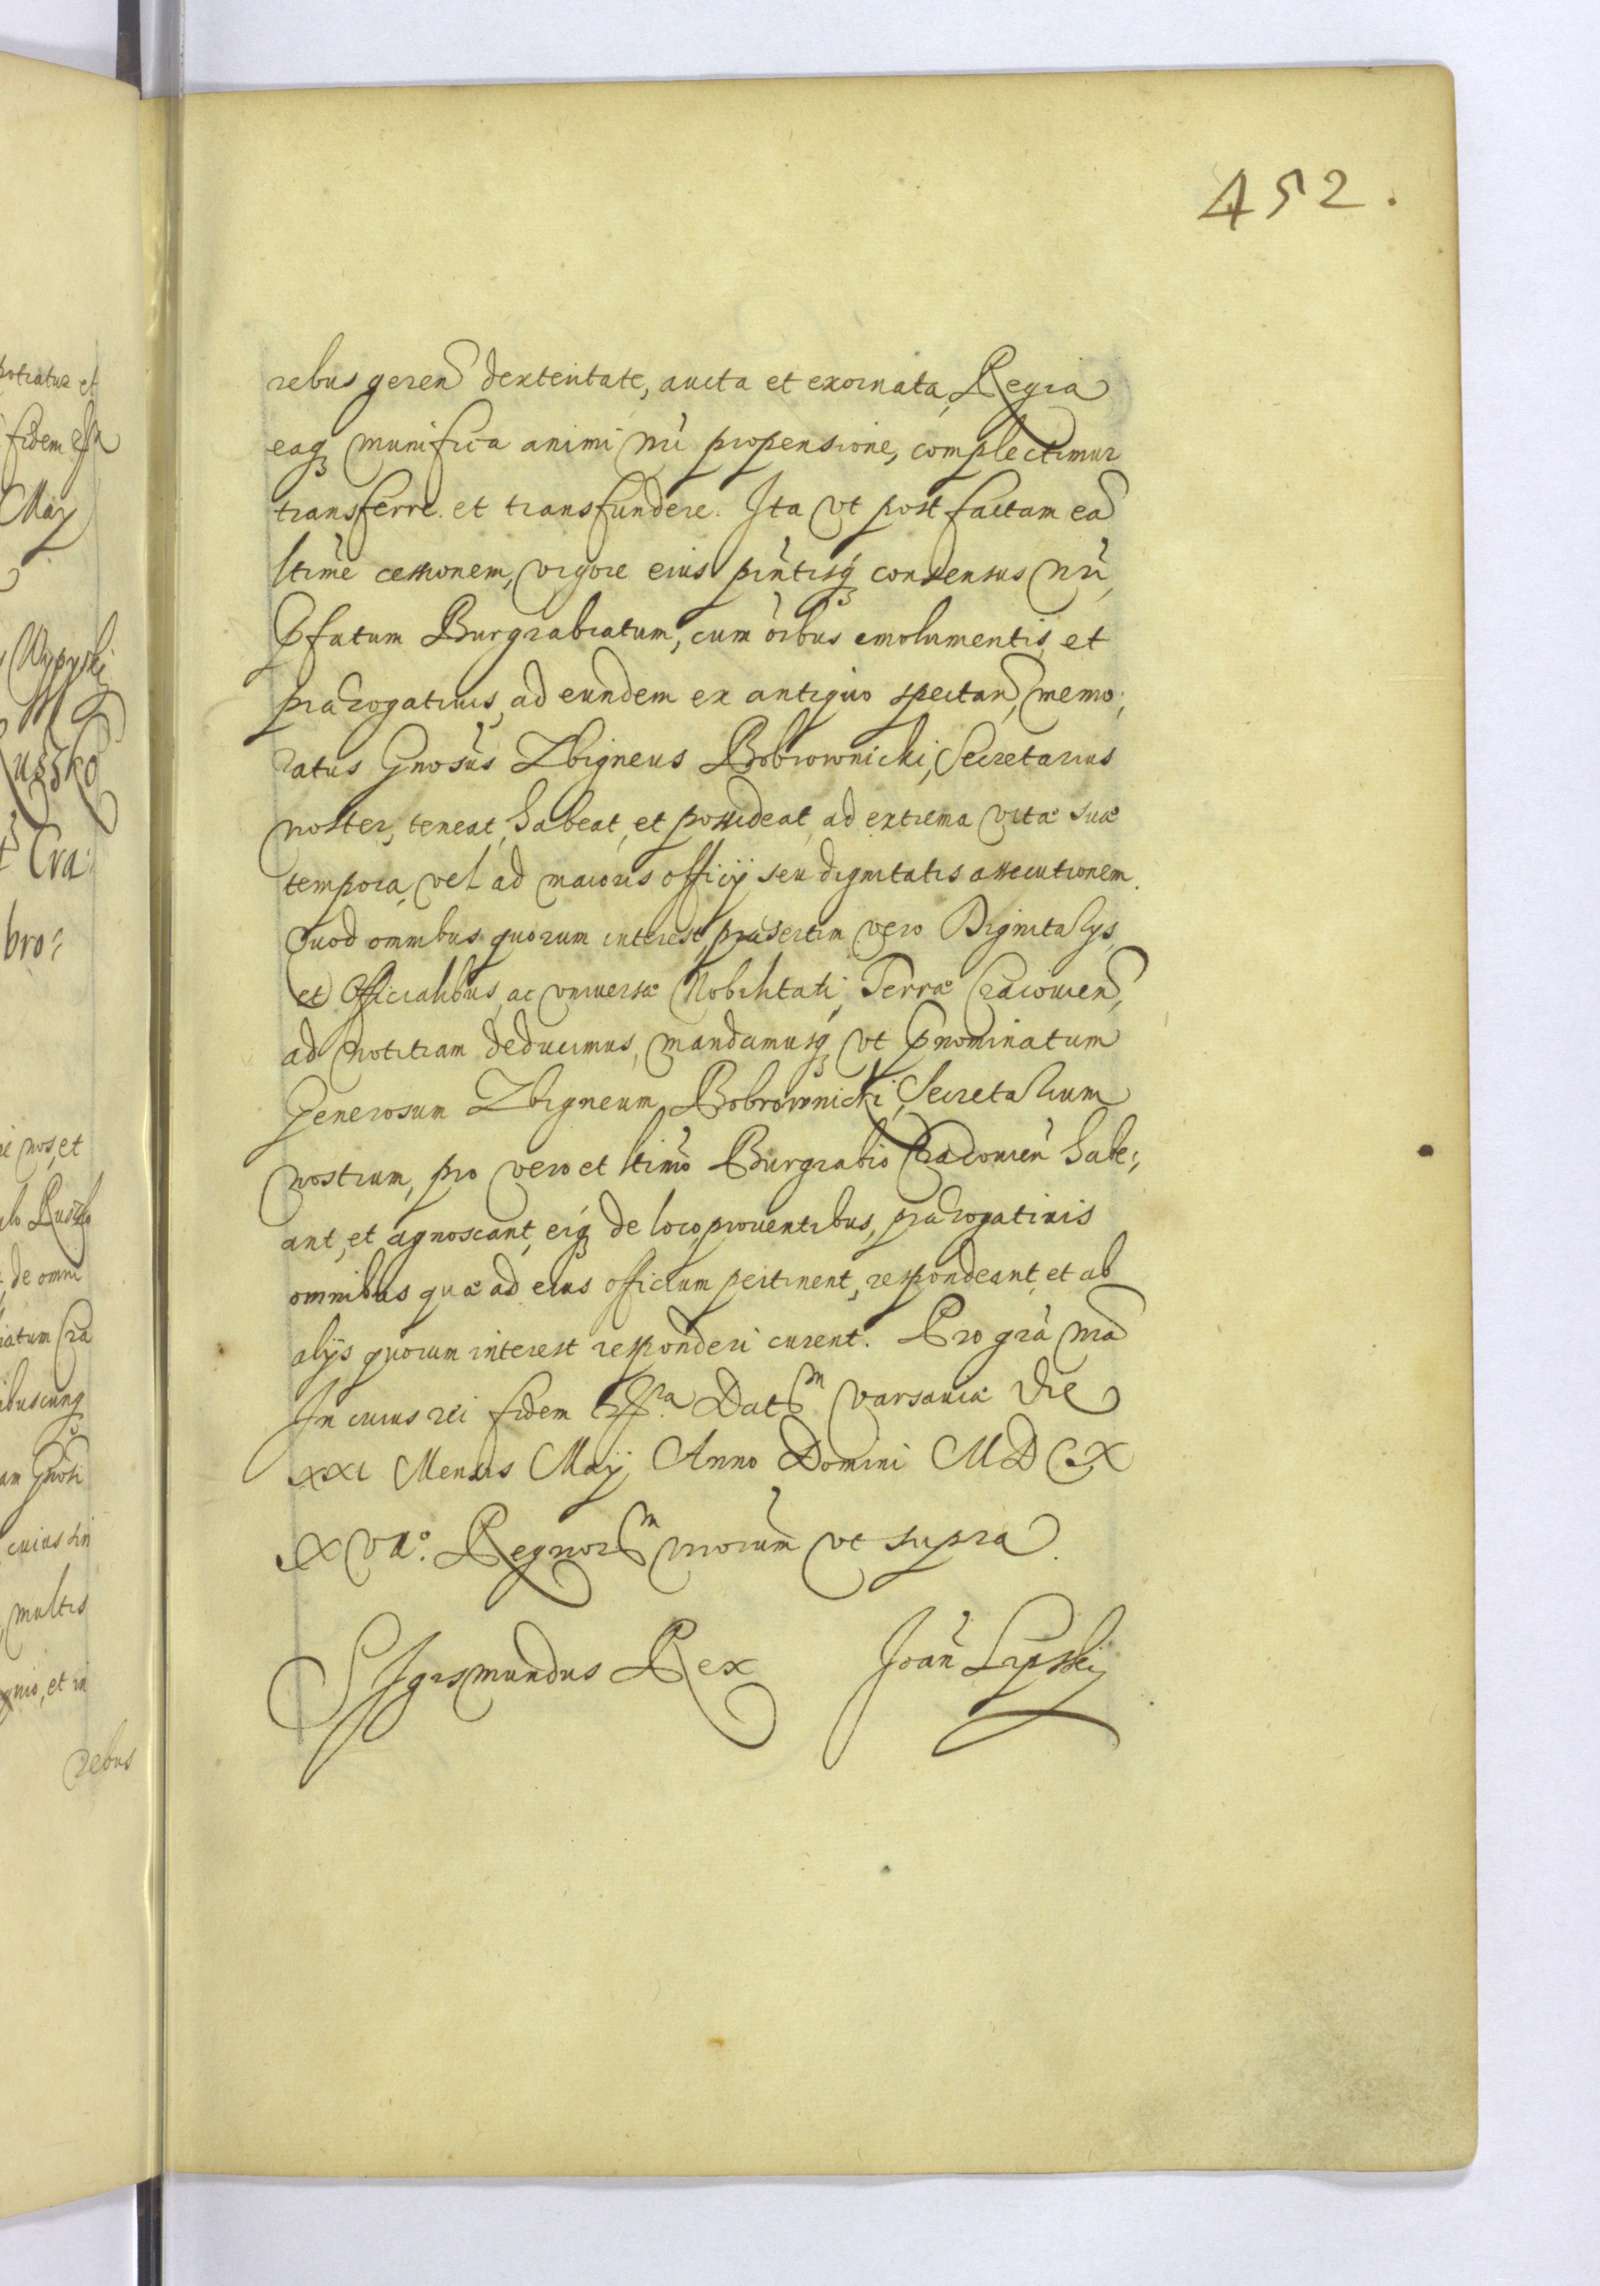 452.
rebus geren dexteritate, aucta et exornata, Regia
eaq munifica animi nri propensione, complectimur
transferre et transfundere. Ita vt post factam ea
ltime cessionem, vigore eius pntisq consensus nri,
pfatum Burgrabiatum, cum oibus emolumentis et
prærogatiuis, ad eundem ex antiquo spectan, memo,
ratus Gnosus Zbigneus Bobrownicki, Secretarius
noster, teneat, habeat, et possideat, ad extrema vitæ suæ
tempora, vel ad maioris officij seu dignitatis assecutionem.
Quod omnibus quorum interest, præsertim vero Dignitarijs,
et Officialibus, ac vniuersæ Nobilitati, Terræ Cracouien,
ad notitiam deducimus, mandamusq vt pnominatum
Generosum Zbigneum Bobrownicki, Secretarium
nostrum, pro vero et ltimo Burgrabio Cracouien habe,
ant, et agnoscant, eiq de loco prouentibus, prærogatiuis
omnibus quæ ad eius officium pertinent, respondeant, et ab
alijs quorum interest responderi curent. Pro gra nra
In cuius rei fidem etc.ra Datum Varsauiæ die
XXI Mensis Maij Anno Domini MDCX
XVIo. Regnorum nrorum vt supra.
Sigismundus Rex Joan Lipski
potratur et
fidem
Maij
Wypyski
Cra:
bro:
nos, et
de omni
iatum Cra
ibuscunq
am Gnosi
cuius sin
multis
et in
rebus